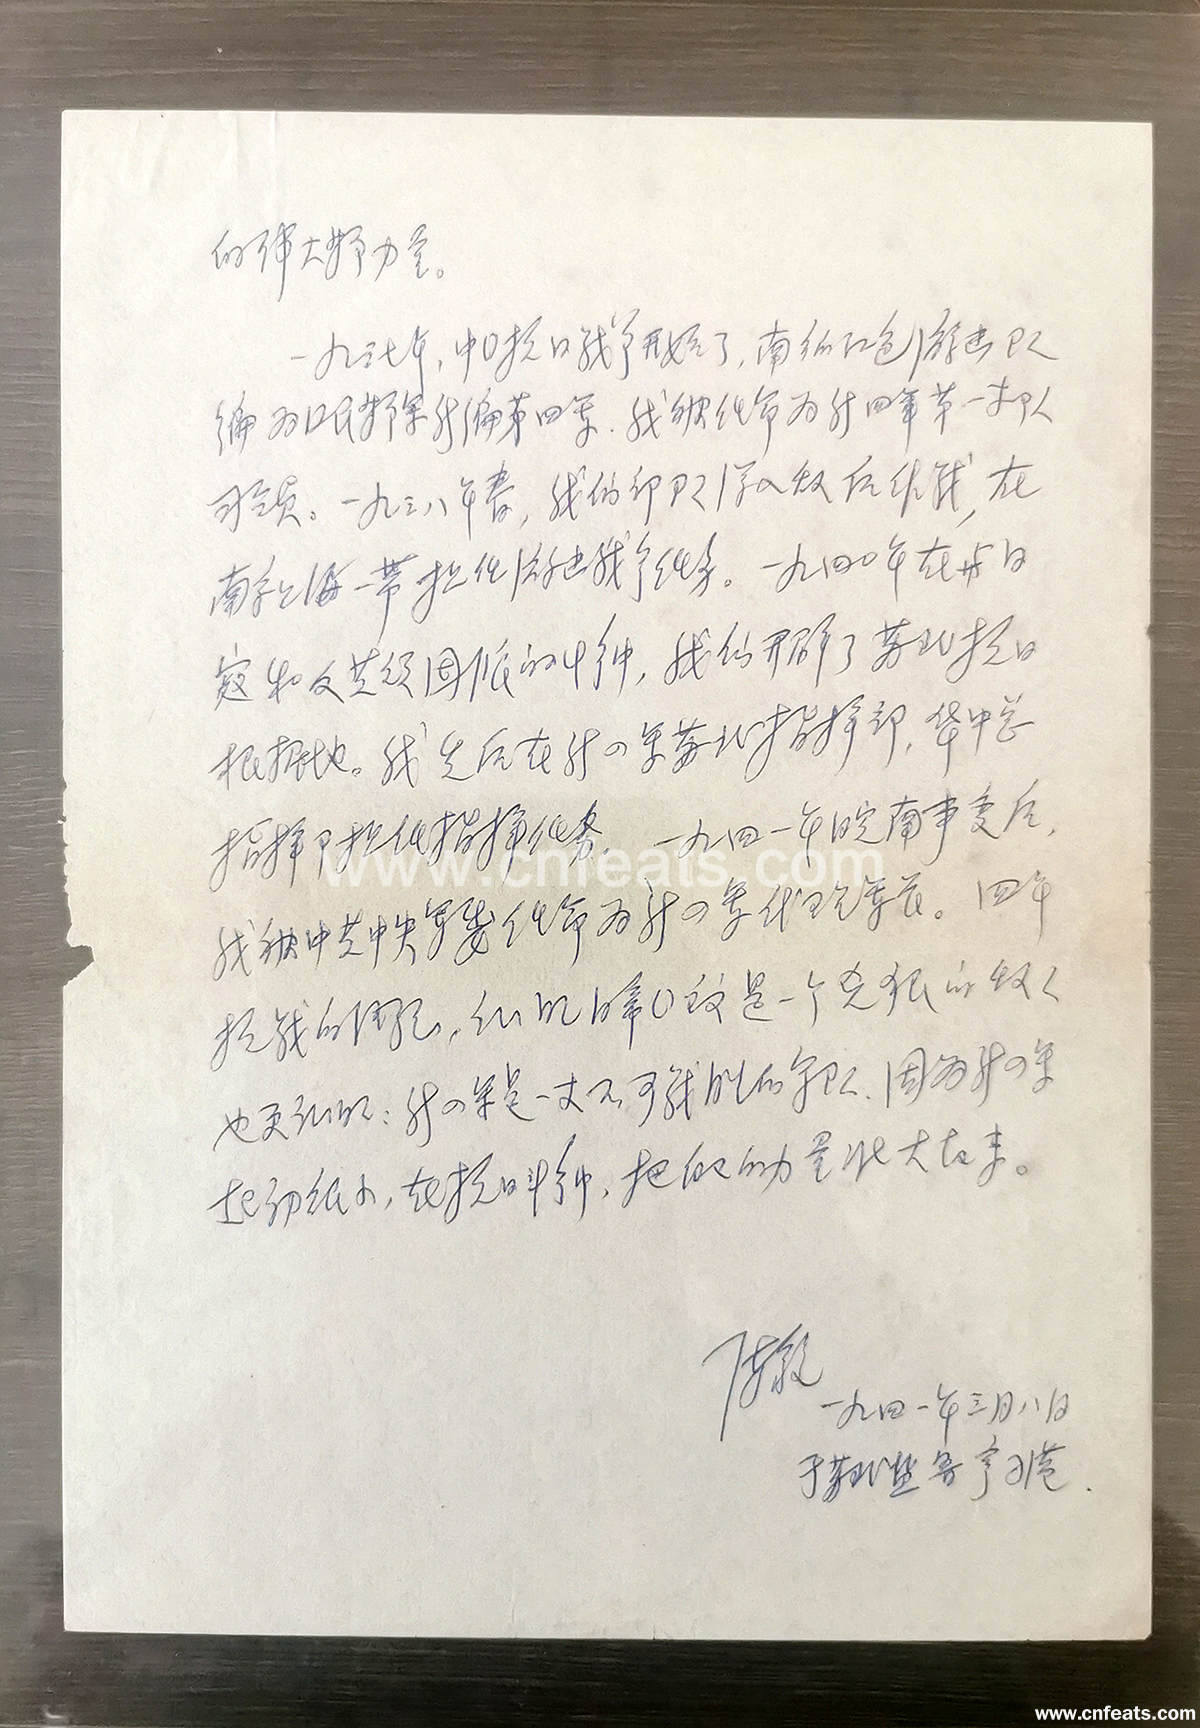 的伟大the力量。
一九三七年，中口抗日战争开始了，南的红色游击队
编为口民革军新编第四军．我被任命为新四军第一支队
司令员。一九三八年春，我的部队深入敌后作战，在
南京上海一带担任游击战争任务。一九四〇年在对日
寇和反共顽固派的斗争中，我们开辟了苏北抗日
根据地。我先后在新四军苏北指挥部，华中总
指挥部担任指挥任务。一九四一年皖南事变后，
我被中共中央军委任命为新四军代理军长。四年
抗战的经验，证明日帝口主义是一个凶狠的敌人
也更证明：新四军是一支不可战胜的军队．因为新四军
起初很小，在抗日斗争中，把自己的力量壮大起来。
陈毅
一九四一年三月八日
于苏北盐阜亭子港．
www.cnfeats.com
www.cnfeats.com